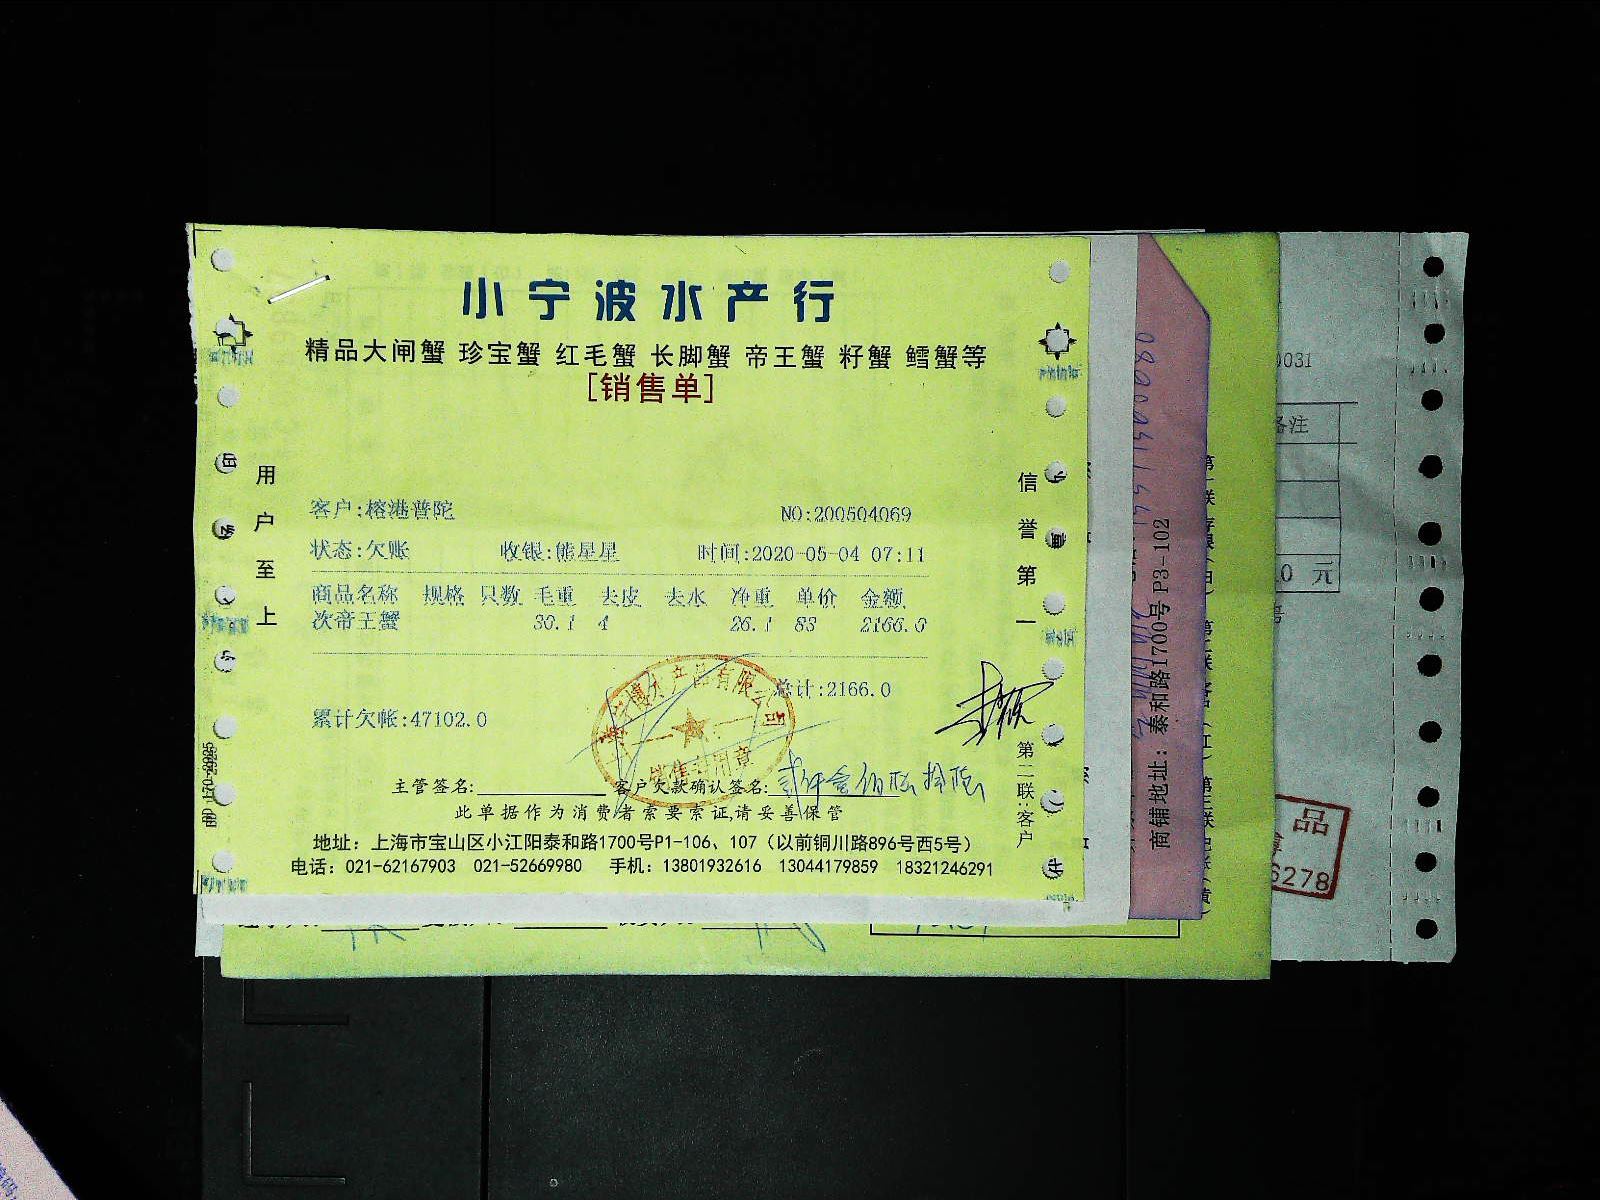 小宁波水产行
精品大闸蟹 珍宝蟹 红毛蟹 长脚蟹 帝王蟹 籽蟹 鳕蟹等
[销售单]
用户至上
信誉第一
客户:榕港普陀 NO:200504069
状态:欠账 收银:熊星星 时间:2020-05-04 07:11
商品名称 规格 只数 毛重 去皮 去水 净重 单价 金额
次帝王蟹 30.1 4 26.1 83 2166.0
总计:2166.0
累计欠帐:47102.0
水产品有限公司
销售专用章
主管签名: 客户欠款确认签名: 贰仟壹佰陆拾陆
此单据作为消费者索要索证,请妥善保管
地址：上海市宝山区小江阳泰和路1700号P1-106、107（以前铜川路896号西5号）
电话：021-62167903 021-52669980 手机：13801932616 13044179859 18321246291
第二联:客户
商铺地址：泰和路1700号 P3-102
0031
备注
.0 元
品
6278